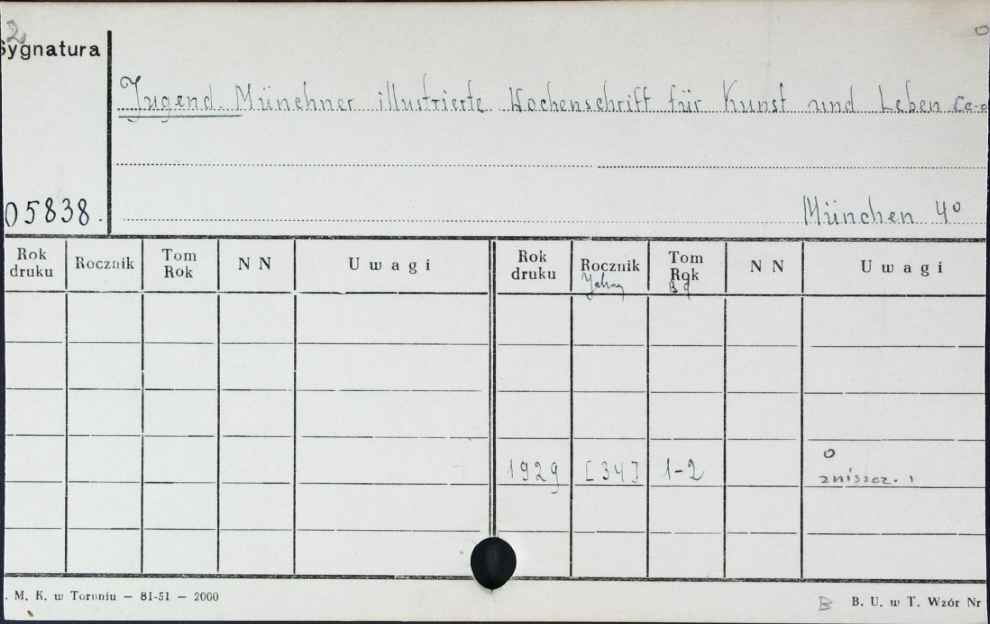 2
Sygnatura
Jugend. Münchner illustrierte Wochenschrift für Kunst und Leben
05838.
München 4°
Rok druku Rocznik Tom Rok N N Uwagi Rok druku Rocznik Tom Rok N N Uwagi
Jahrg Bd
o
1929 [34] 1-2 zniszcz. 1
. M. K. w Toruniu — 81-51 — 2000
B B. U. w T. Wzór Nr